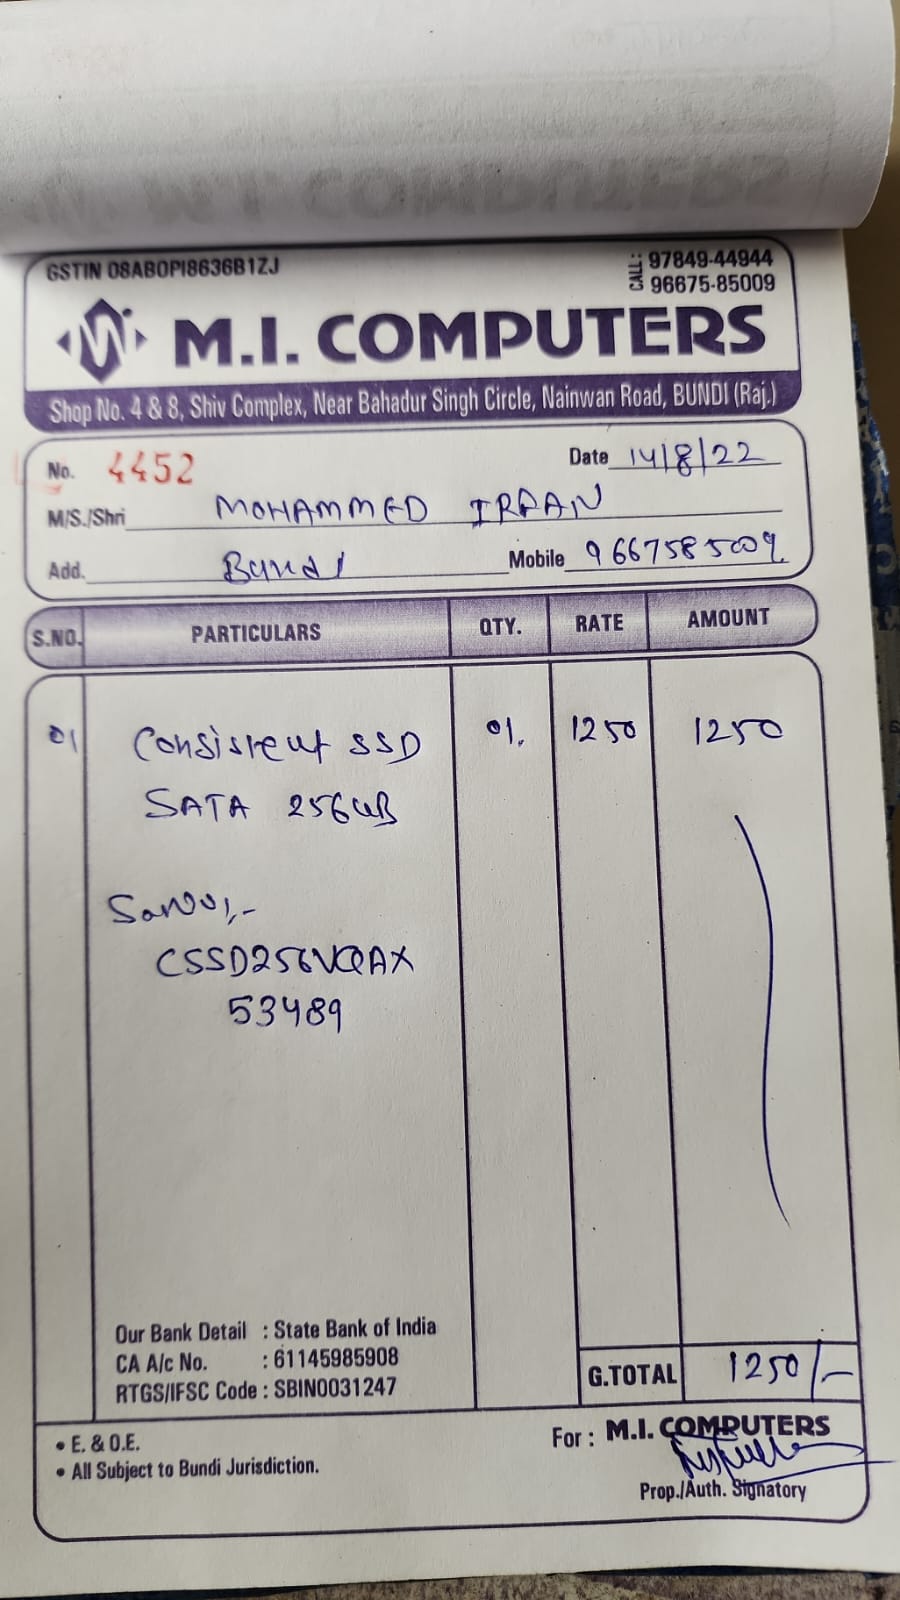 GSTIN 08ABOPI8636B1ZJ
CALL: 97849-44944
96675-85009
M.I. COMPUTERS
Shop No. 4 & 8, Shiv Complex, Near Bahadur Singh Circle, Nainwan Road, BUNDI (Raj.)
No. 4452 Date 14/8/22
M/S./Shri MOHAMMED IRFAN
Add. Bundi Mobile 9667585009
S.NO. PARTICULARS QTY. RATE AMOUNT
01 Consistent SSD 01. 1250 1250
SATA 256GB
CSSD256VQAX
53489
Our Bank Detail : State Bank of India
CA A/c No. : 61145985908
RTGS/IFSC Code : SBIN0031247
G.TOTAL 1250/-
• E. & O.E.
• All Subject to Bundi Jurisdiction.
For : M.I. COMPUTERS
Prop./Auth. Signatory